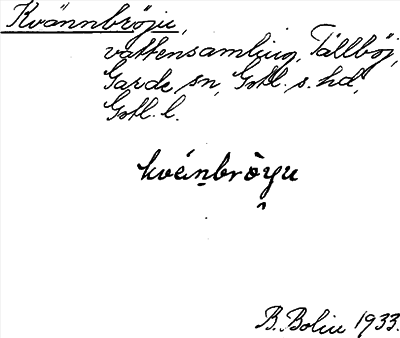 Kvännbröju,
vattensamling, Tällböj,
Garde sn, Gotl. s. hd,
Gotl. l.
kvánbròyu
B. Bolin 1933.